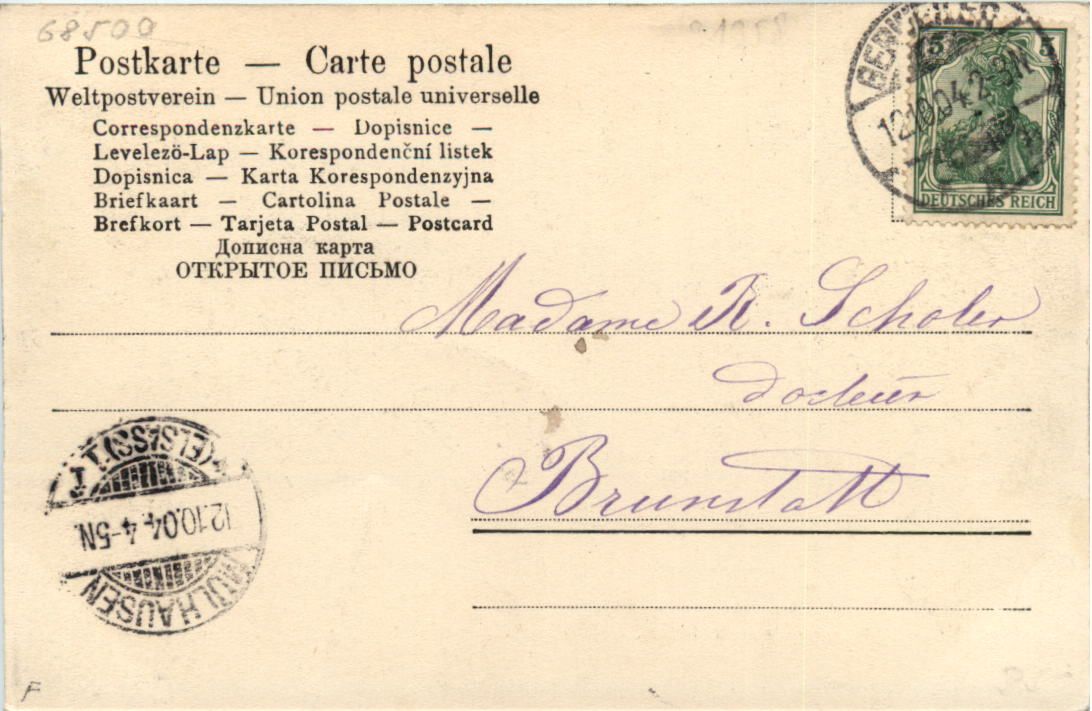 68500
Postkarte — Carte postale
Weltpostverein — Union postale universelle
Correspondenzkarte — Dopisnice —
Levelezö-Lap — Korespondenční listek
Dopisnica — Karta Korespondenzyjna
Briefkaart — Cartolina Postale —
Brefkort — Tarjeta Postal — Postcard
Дописна карта
ОТКРЫТОЕ ПИСЬМО
12.10.04. 2-3N
5 5
DEUTSCHES REICH
Madame R. Scholer
docteur
Brunstatt
MÜLHAUSEN
(ELSASS) 1
12.10.04. 4-5N.
F